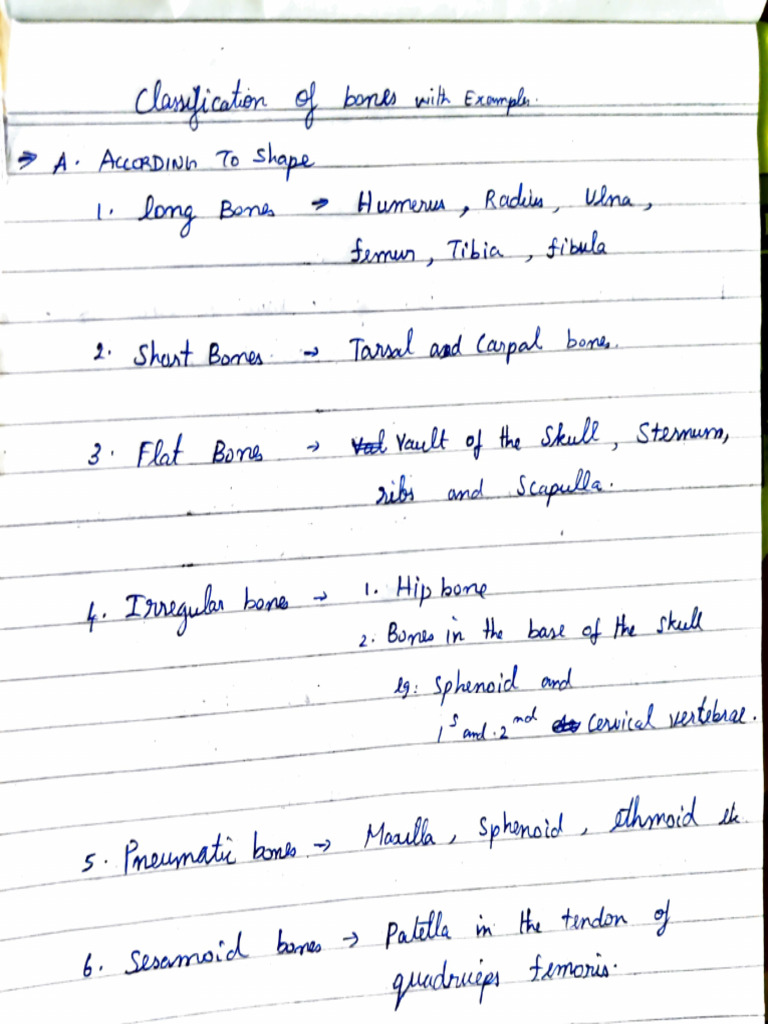 Classification of bones with Examples.
⇒ A. ACCORDING To Shape
1. long Bones → Humerus, Radius, Ulna,
femur, Tibia, fibula
2. Short Bones → Tarsal and Carpal bones.
3. Flat Bones → Vault of the Skull, Sternum,
ribs and Scapulla.
4. Irregular bones → 1. Hip bone
2. Bones in the base of the skull
eg: Sphenoid and
1s and 2nd Cervical vertebrae.
5. Pneumatic bones → Maxilla, Sphenoid, ethmoid etc
6. Sesamoid bones → Patella in the tendon of
quadriceps femoris.